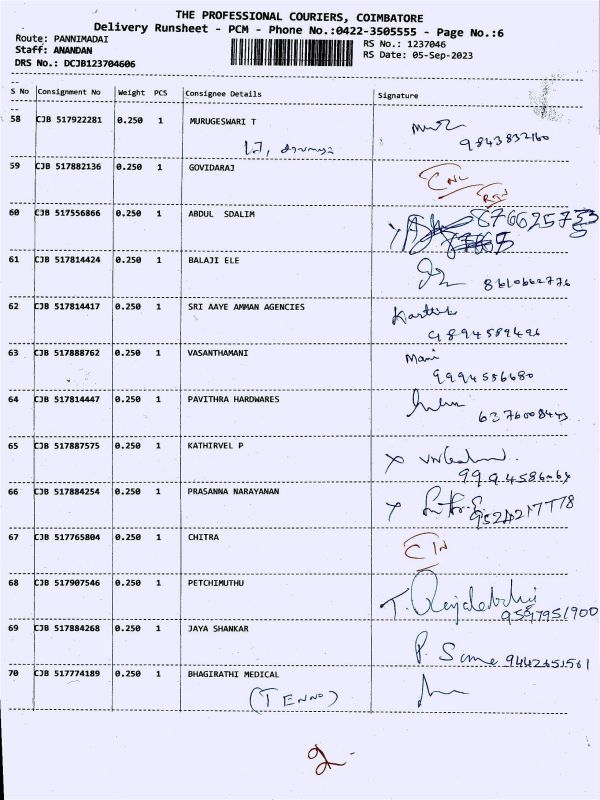 THE PROFESSIONAL COURIERS, COIMBATORE
Delivery Runsheet - PCM - Phone No.:0422-3505555 - Page No.:6
Route: PANNIMADAI
Staff: ANANDAN
DRS No.: DCJB123704606
RS No.: 1237046
RS Date: 05-Sep-2023
S No Consignment No Weight PCS Consignee Details Signature
58 CJB 517922281 0.250 1 MURUGESWARI T
9843832160
59 CJB 517882136 0.250 1 GOVIDARAJ
CNL
RTN
60 CJB 517556866 0.250 1 ABDUL SDALIM
61 CJB 517814424 0.250 1 BALAJI ELE
8610662776
62 CJB 517814417 0.250 1 SRI AAYE AMMAN AGENCIES
Karthik
9894589496
63 CJB 517888762 0.250 1 VASANTHAMANI
Mani
9994556680
64 CJB 517814447 0.250 1 PAVITHRA HARDWARES
65 CJB 517887575 0.250 1 KATHIRVEL P
66 CJB 517884254 0.250 1 PRASANNA NARAYANAN
9524217778
67 CJB 517765804 0.250 1 CHITRA
68 CJB 517907546 0.250 1 PETCHIMUTHU
9597951900
69 CJB 517884268 0.250 1 JAYA SHANKAR
9442651561
70 CJB 517774189 0.250 1 BHAGIRATHI MEDICAL
(TENNO)